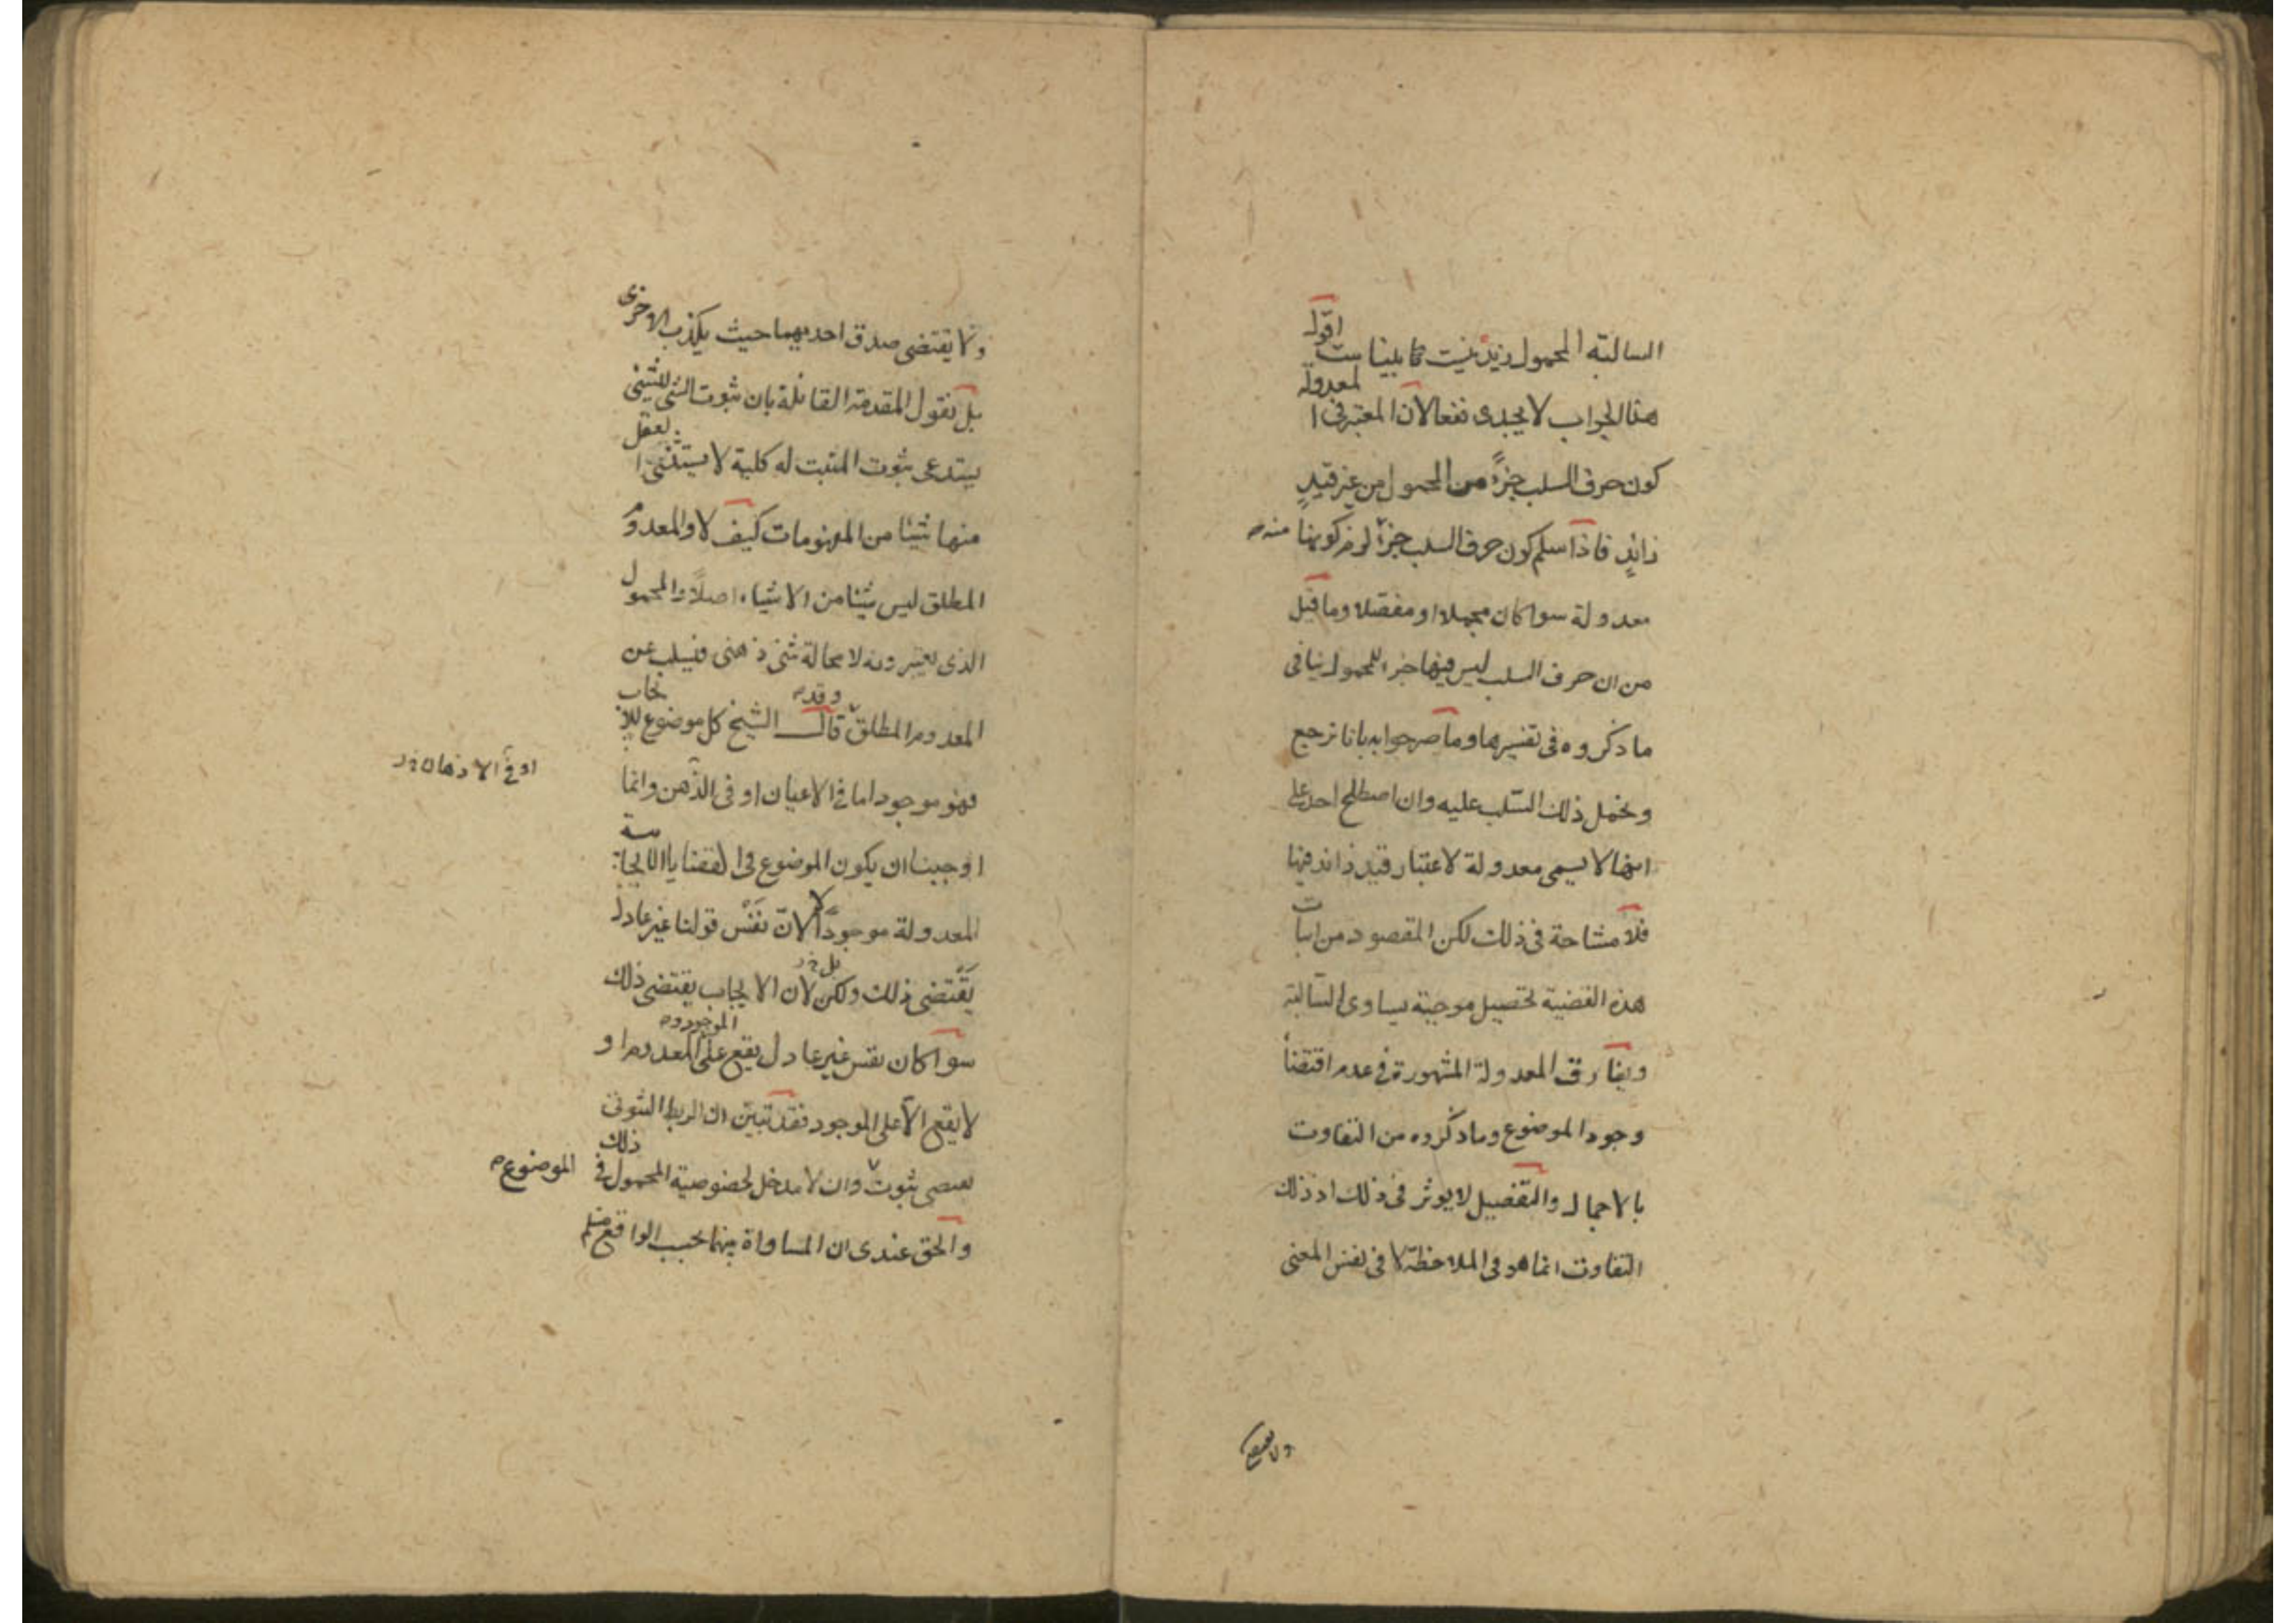 السالبة المحمول زيد نيست نابيناست اقول
هذا الجواب لا يجدى نفعا لان المعتبر فى المعدولة
كون حرف السلب جزءً من المحمول من غير قيدٍ
زائدٍ فاذا سلم كون حرف السلب جزءً لزم كونها
معدولة سوا كان مجملا او مفصلا وما قيل
من ان حرف السلب ليس فيها جزا للمحمول ينافى
ما ذكروه فى تفسيرها وما صرحوا به بانا نرجع
ونحمل ذلك السّلب عليه وان اصطلح احد على
انها لا يسمى معدولة لاعتبار قيد زائد فيها
فلا مشاحة فى ذلك لكن المقصود من اثبات
هذه القضية تحصيل موجبة يساوى السّالبة
ويفارق المعدولة المشهورة فى عدم اقتضأ
وجود الموضوع وما ذكروه من التفاوت
بالاجمال والتّفصيل لا يوثر فى ذلك اذ ذلك
التفاوت انما هو فى الملاحظة لا فى نفس المعنى
ولا يقتضى صدق احديهما حيث يكذب الاخرى
بل نقول المقدمة القائلة بان ثبوت الشئ للشئ
يستدعى ثبوت المثبت له كلية لا يستثنى العقل
منها شيئا من المفهومات كيف لا والمعدوم
المطلق ليس شيئا من الاشياء اصلاً والمحمول
الذى يعتبرونه لا محالة شئ ذهنى فيسلب عن
وقد
المعدوم المطلق قال الشيخ كل موضوع للايجاب
فهو موجود اما فى الاعيان او فى الذّهن وانما
او فى الاذهان
اوجبنا ان يكون الموضوع فى القضايا الايجابية
المعدولة موجودًا لا لانّ نفس قولنا غير عادل
يقتضى ذلك ولكن لان الايجاب يقتضى ذلك
بل
سوا كان نفس غير عادل يقع على الموجود والمعدوم او
لا يقع الّا على الموجود فقد تبيّن ان الربط الثبوتى
يقتضى ثبوت وان لا مدخل لخصوصية المحمول فى ذلك
الموضوع
والحق عندى ان المساواة بينهما بحسب الواقع مسلم